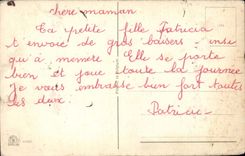 chere maman
Ta petite fille Patricia
t'envoie de gros baisers insi
qu'à memere Elle se porte
bien et joue toute la journée
Je vous embrasse bien fort toutes
les deux
Patricie